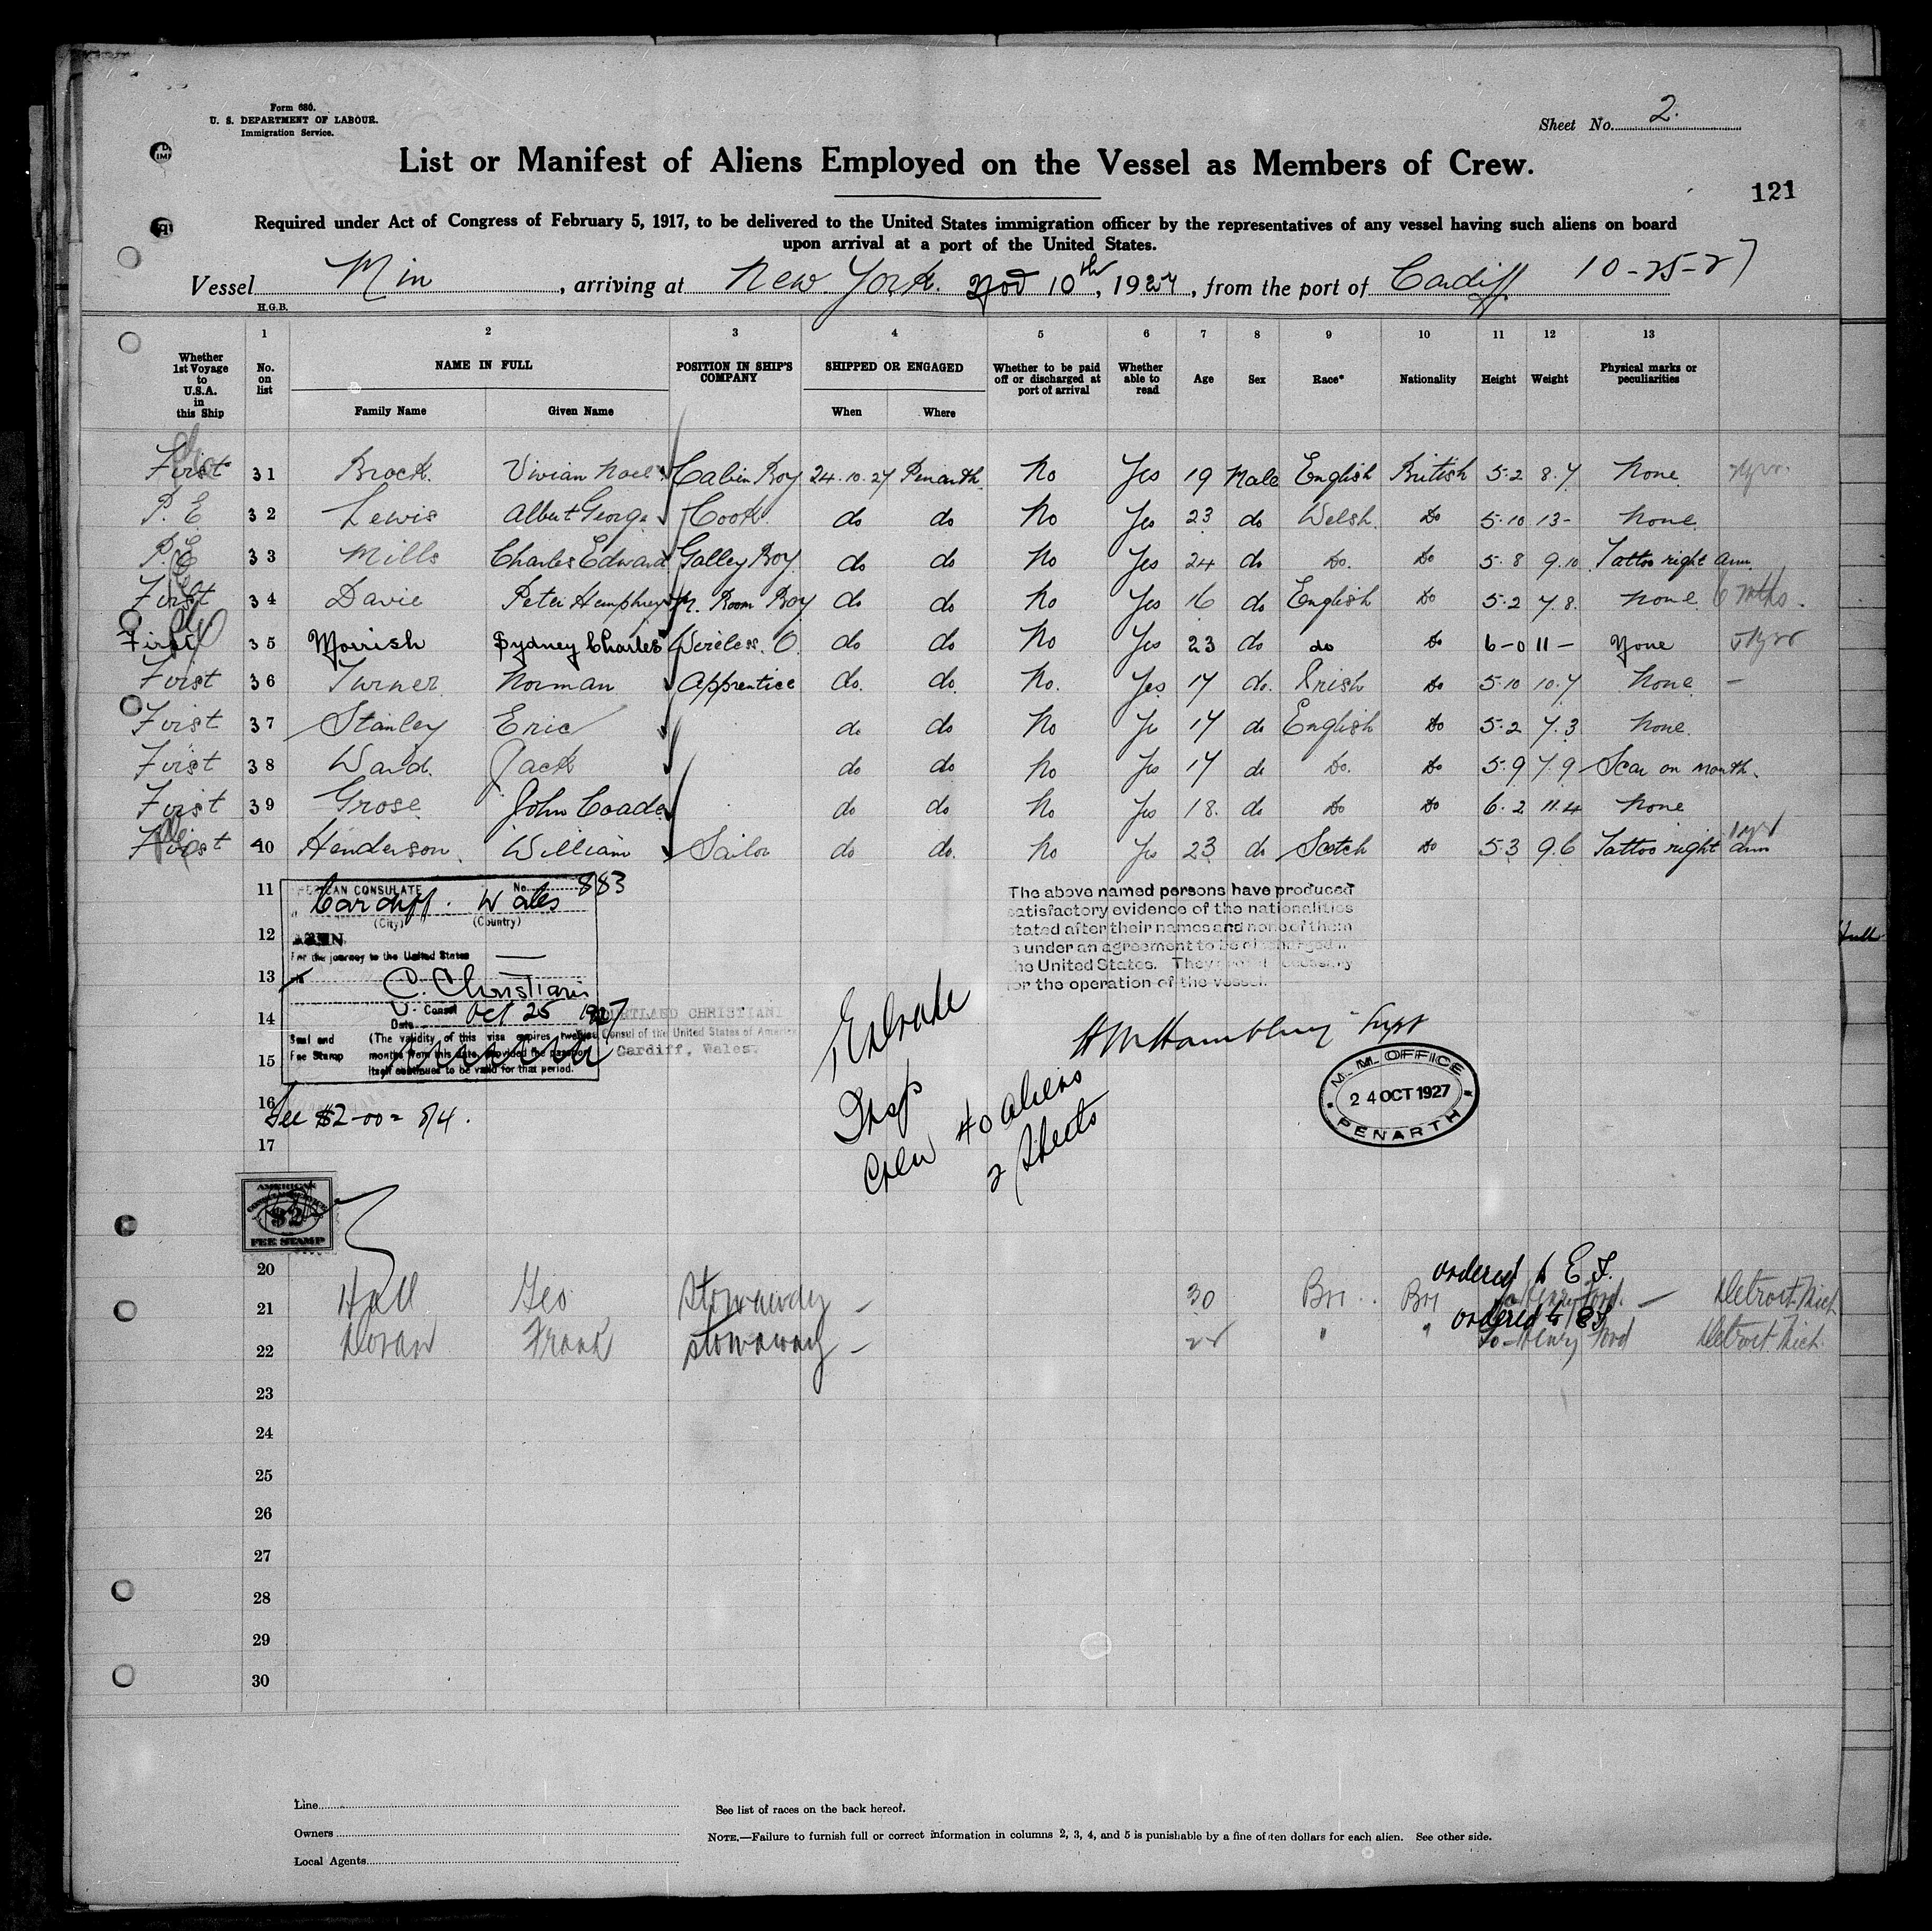 Form 680.
U. S. DEPARTMENT OF LABOUR.
Immigration Service.
Sheet No. 2.
List or Manifest of Aliens Employed on the Vessel as Members of Crew.
121
Required under Act of Congress of February 5, 1917, to be delivered to the United States immigration officer by the representatives of any vessel having such aliens on board
upon arrival at a port of the United States.
Vessel Min, arriving at New York. Nov 10th, 1927, from the port of Cardiff 10-25-27
H.G.B.
1 2 3 4 5 6 7 8 9 10 11 12 13
Whether 1st Voyage to U.S.A. in this Ship No. on list NAME IN FULL POSITION IN SHIP'S COMPANY SHIPPED OR ENGAGED Whether to be paid off or discharged at port of arrival Whether able to read Age Sex Race* Nationality Height Weight Physical marks or peculiarities
Family Name Given Name When Where
First 31 Brock. Vivian Noel Cabin Boy 24.10.27 Penarth. No Yes 19 Male English British 5.2 8.7 None
P. E 32 Lewis Albert George Cook. do do No Yes 23 do Welsh. Do 5.10 13- None
P. E 33 Mills Charles Edward Galley Boy. do do No Yes 24 do Do. Do 5.8 9.10 Tattoo right arm.
First 34 Davie Peter Humphreys M. Room Boy do do No Yes 16 do English Do 5.2 7.8. None 6 mths.
First 35 Morrish Sydney Charles Wireless. O. do do No Yes 23 do do Do 6-0 11- None
First 36 Turner Norman Apprentice do. do. No. Yes 17 do. Irish Do 5.10 10.7 None -
First 37 Stanley Eric do do No Yes 17 do English Do 5.2 7.3 None.
First 38 Ward. Jack do do No Yes 17 do Do. Do 5.9 7.9 Scar on mouth.
First 39 Grose John Coade do do No Yes 18. do Do Do 6.2 11.4 None
First 40 Henderson. William Sailor do do. No Yes 23 do Scotch Do 5.3 9.6 Tattoo right arm
11
12
13
14
15
16
17
AMERICAN CONSULATE No. 883
Cardiff. Wales
(City) (Country)
SEEN
For the journey to the United States
C. Christiani
V. Consul
Date Oct 25 1927
Seal and Fee Stamp
(The validity of this visa expires twelve
months from this date, provided the passport
itself continues to be valid for that period.
CORTLAND CHRISTIANI
Consul of the United States of America
Cardiff, Wales.
Fee $2-00 = 8/4.
AMERICAN
$2
FEE STAMP
The above named persons have produced
satisfactory evidence of the nationalities
stated after their names and none of them
is under an agreement to be discharged in
the United States. They are necessary
for the operation of the vessel.
Supt
M. M. OFFICE
24 OCT 1927
PENARTH
Insp
Crew 40 aliens
2 sheets
20
ordered to E I.
21 Hall Geo Stowaway - 30 Bri Bri to Henry Ford. - Detroit Mich
ordered to E I
22 Doran Frank stowaway - " " to Henry Ford Detroit Mich.
23
24
25
26
27
28
29
30
Line
Owners
Local Agents
See list of races on the back hereof.
NOTE.—Failure to furnish full or correct information in columns 2, 3, 4, and 5 is punishable by a fine of ten dollars for each alien. See other side.